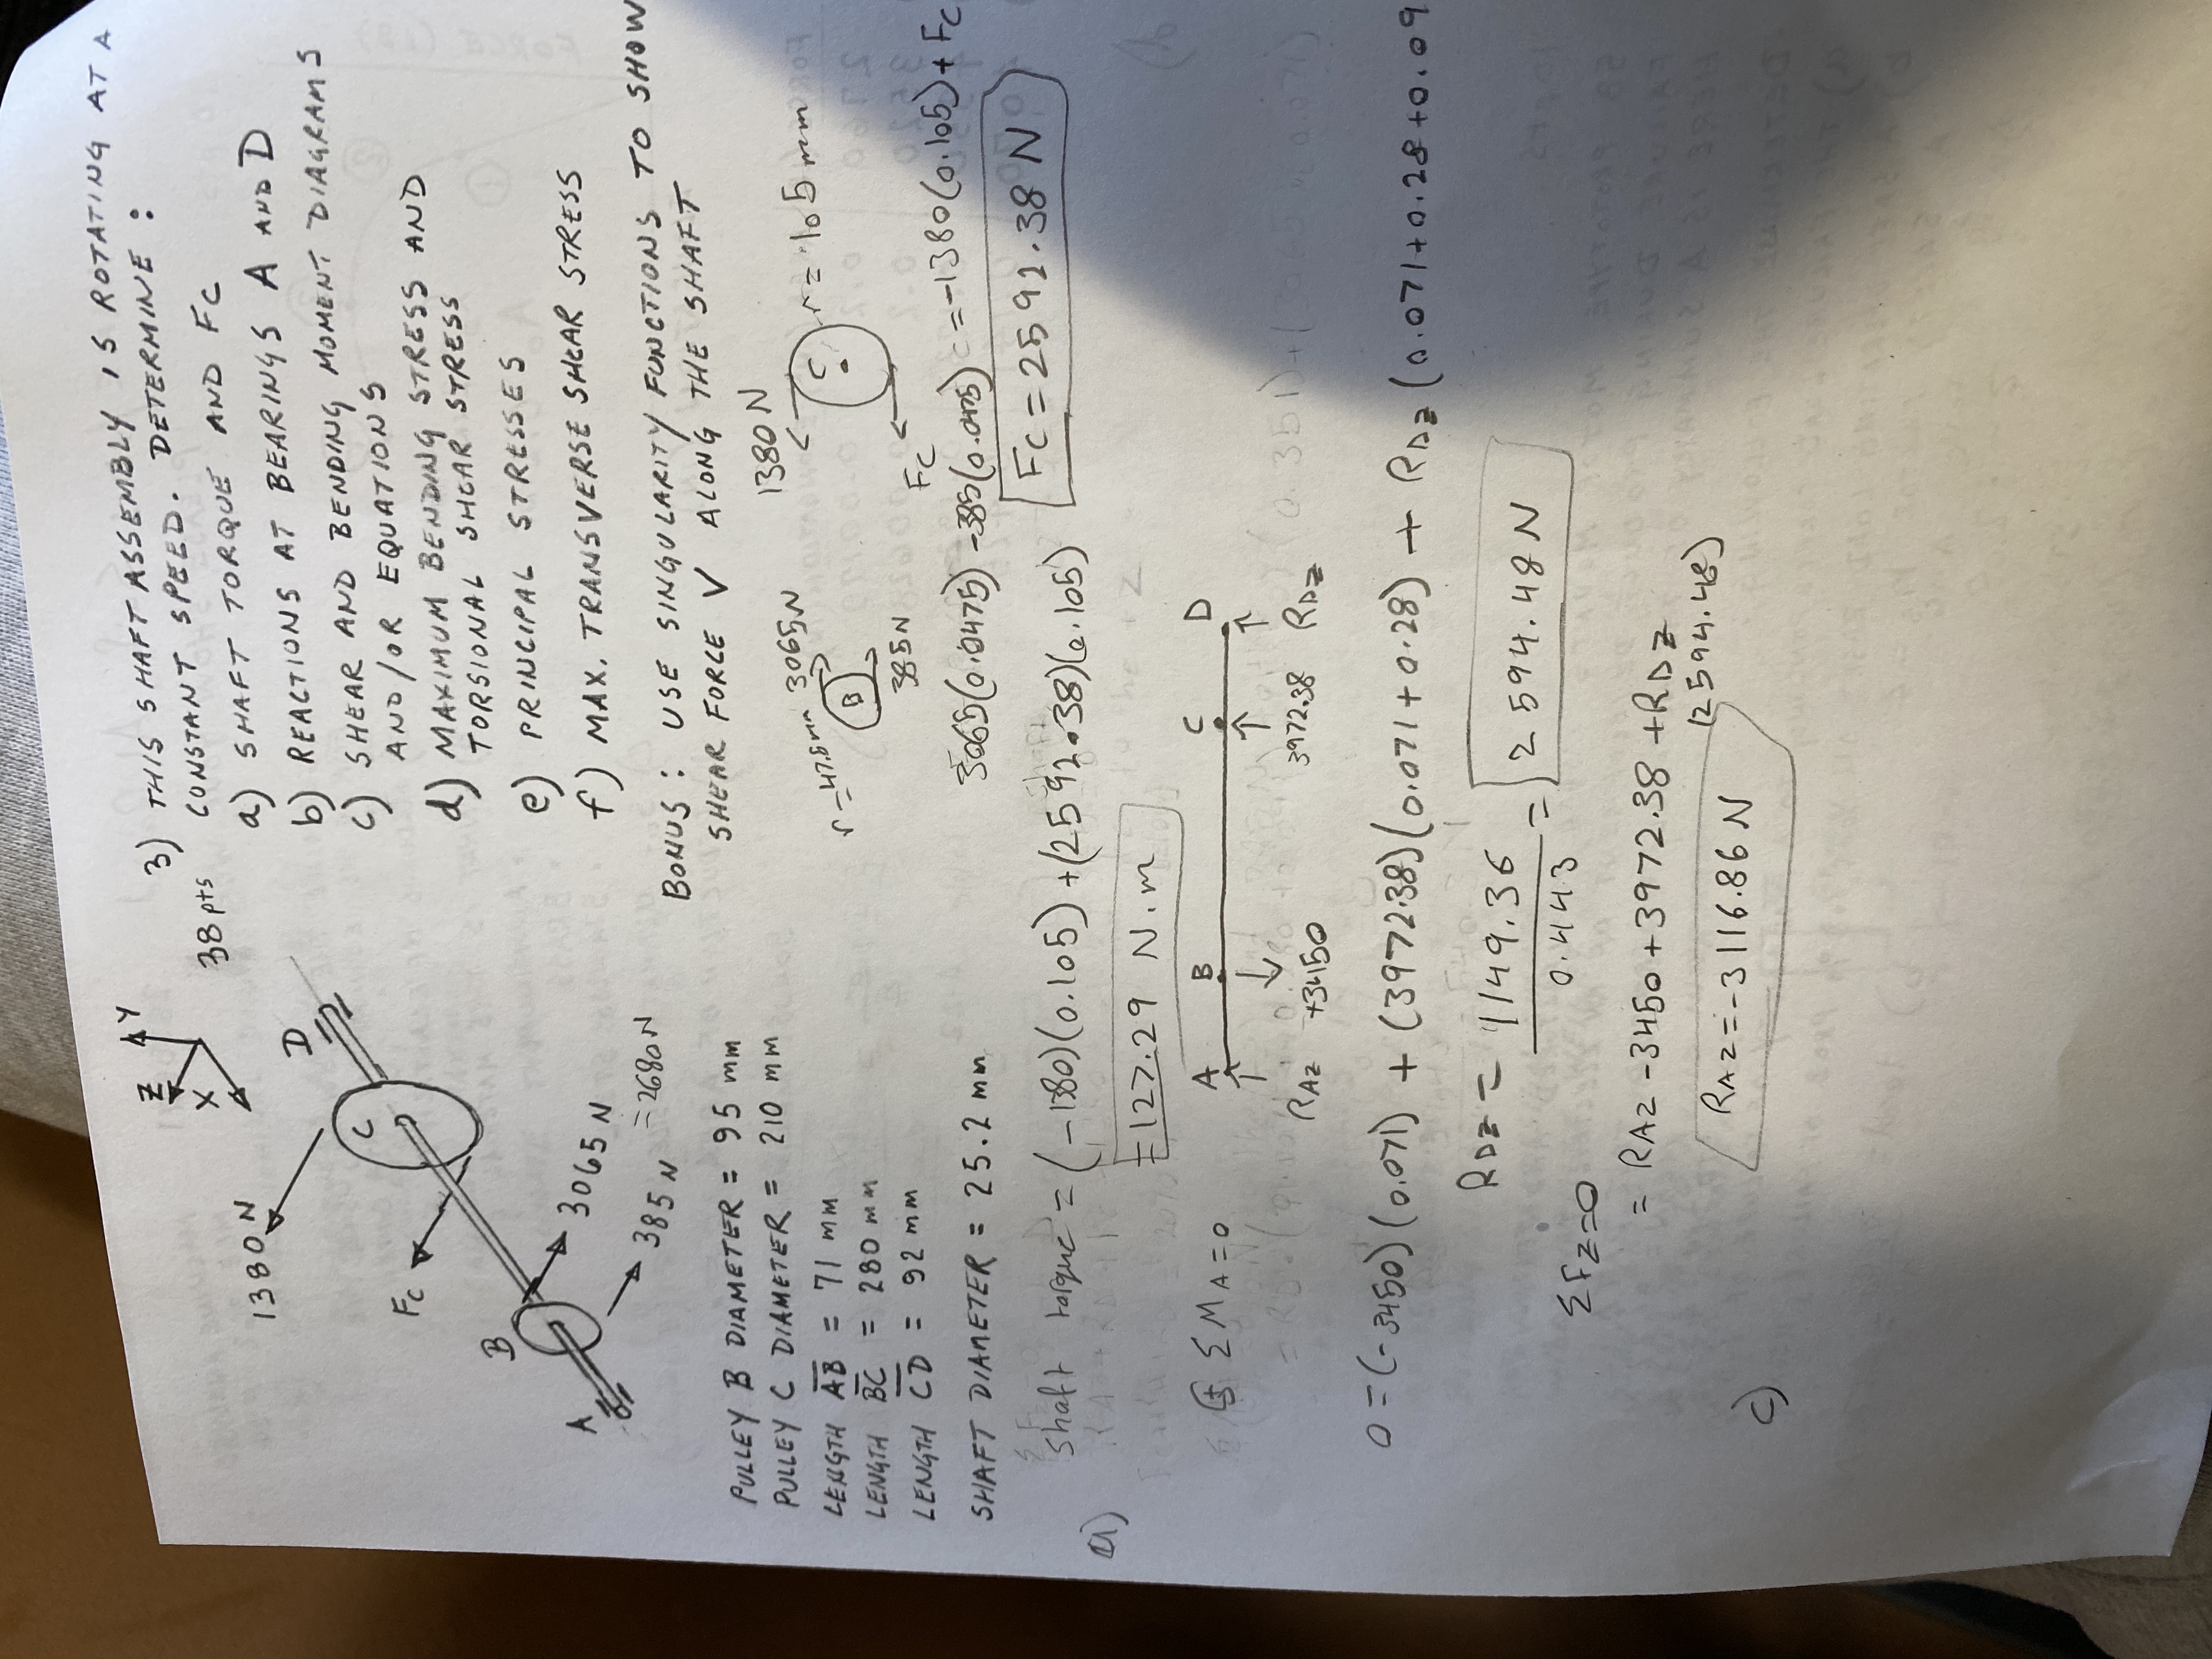 3) THIS SHAFT ASSEMBLY IS ROTATING AT A
38 pts CONSTANT SPEED. DETERMINE :
a) SHAFT TORQUE AND FC
b) REACTIONS AT BEARINGS A AND D
c) SHEAR AND BENDING MOMENT DIAGRAMS
AND/OR EQUATIONS
d) MAXIMUM BENDING STRESS AND
TORSIONAL SHEAR STRESS
e) PRINCIPAL STRESSES
f) MAX. TRANSVERSE SHEAR STRESS
BONUS : USE SINGULARITY FUNCTIONS TO SHOW
SHEAR FORCE V ALONG THE SHAFT
Z
Y
X
1380 N
D
C
FC
B
A
3065 N
385 N
=2680N
PULLEY B DIAMETER = 95 mm
PULLEY C DIAMETER = 210 mm
LENGTH AB = 71 mm
LENGTH BC = 280 mm
LENGTH CD = 92 mm
SHAFT DIAMETER = 25.2 mm
1380N
r=47.5mm
3065N
B
385N
C
r=105mm
FC
3065(0.0475)-385(0.0475)=-1380(0.105)+FC
FC=2592.38 N
a)
shaft torque=(-1380)(0.105)+(2592.38)(0.105)
=127.29 N.m
A B C D
RAZ +3450 3972.38 RDZ
+ ΣMA=0
0=(-3450)(0.071)+(3972.38)(0.071+0.28)+RDZ(0.071+0.28+0.09
RDZ= 1149.36
0.443
= 2594.48N
ΣFZ=0
= RAZ-3450+3972.38+RDZ
(2594.48)
RAZ=-3116.86N
c)